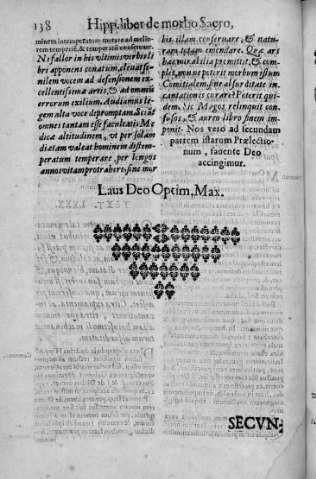 138 Hipp. liber de morbo Sacro,
minem intemperatum mutare ad melio-
rem temperiē, & temperatū conseruare.
Ni fallor in his vltimis verbis li-
bri apponens conatum, eleuat se-
milem vocem ad defensionem ex-
cellentissimæ artis, & ad omniū
errorum exilium. Audiamus le-
gem alta voce depromptam. Sciūt
omnes tantam esse facultatis Me-
dicæ altitudinem, vt per solam
diætam valeat hominem distem-
peratum temperare, per longos
annos vitam protrahere, sine mor
bis, illam conseruare, & natu-
ram totam emendare. Quæ ars
hæc mirabilia promittit, & com-
plet, num ne poterit morbum istum
Comitialem, sine absurditate in-
cantationis curare? Poteris qui-
dem. Sic Magos relinquit confu-
sos, & aureo libro finem im-
ponit. Nos vero ad secundam
partem istarum Prælectio-
num, fauente Deo
accingimur.
Laus Deo Optim. Max.
SECVN-